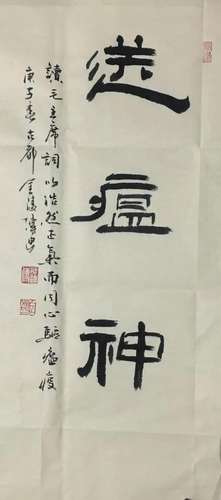 送瘟神
讀毛主席詞以浩然正氣而同心驅瘟疫
庚子春古都金陵